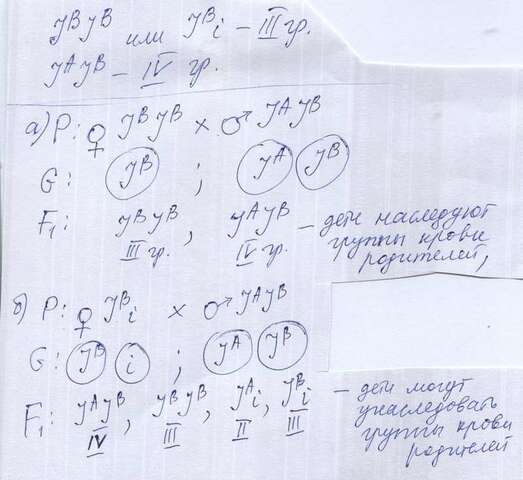 JᴮJᴮ или Jᴮi – III гр.
JᴬJᴮ – IV гр.
а) P: ♀ JᴮJᴮ × ♂ JᴬJᴮ
G: Jᴮ ; Jᴬ Jᴮ
F₁: JᴮJᴮ, JᴬJᴮ – дети наследуют
III гр. IV гр. группы крови
родителей,
б) P: ♀ Jᴮi × ♂ JᴬJᴮ
G: Jᴮ i ; Jᴬ Jᴮ
F₁: JᴬJᴮ, JᴮJᴮ, Jᴬi, Jᴮi – дети могут
IV III II III унаследовать
группы крови
родителей